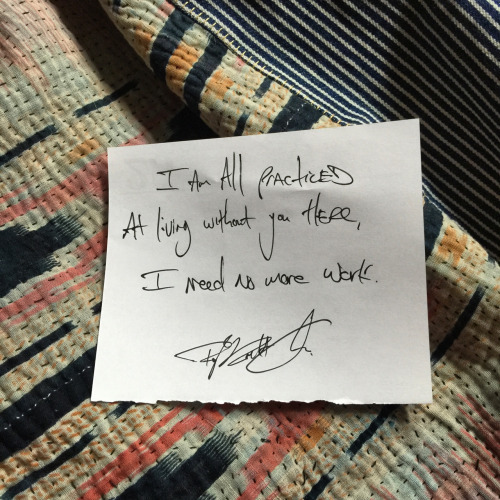 I Am All PRACTICED
At living without you HERE,
I need no more work.